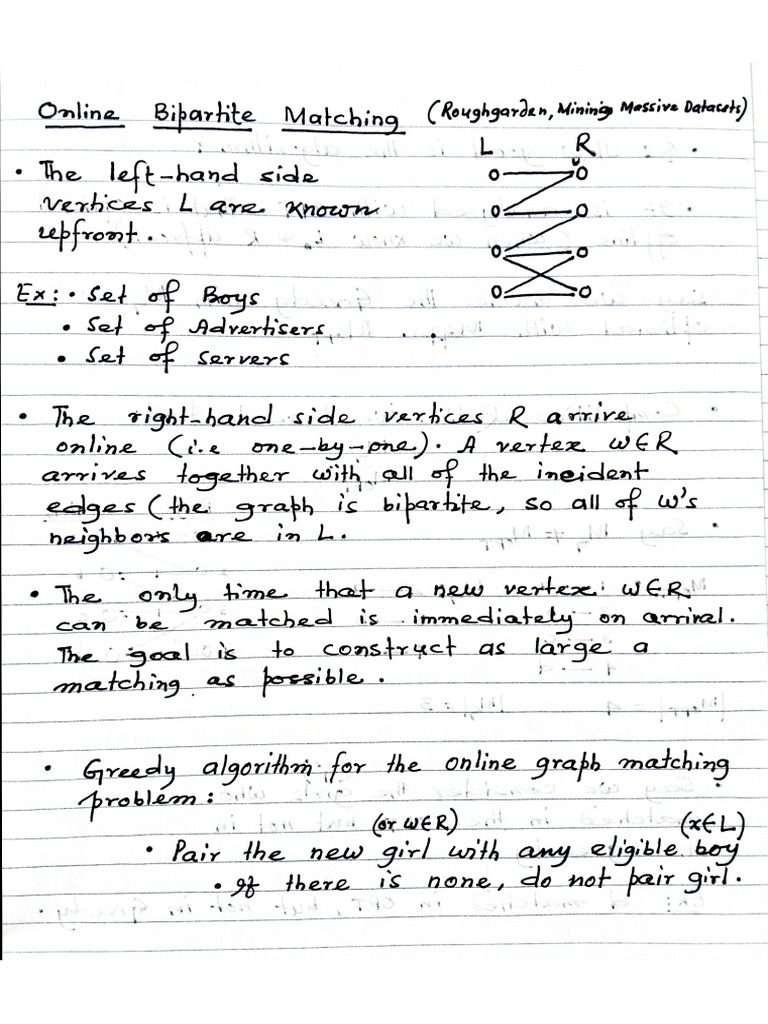 Online Bipartite Matching (Roughgarden, Mining Massive Datasets)
L R
• The left-hand side
vertices L are known
upfront.
Ex: • Set of Boys
• Set of Advertisers
• Set of servers
• The right-hand side vertices R arrive
online (i.e one-by-one). A vertex w∈R
arrives together with all of the incident
edges (the graph is bipartite, so all of w's
neighbors are in L.
• The only time that a new vertex w∈R
can be matched is immediately on arrival.
The goal is to construct as large a
matching as possible.
• Greedy algorithm for the online graph matching
problem:
(or w∈R) (x∈L)
• Pair the new girl with any eligible boy
• If there is none, do not pair girl.